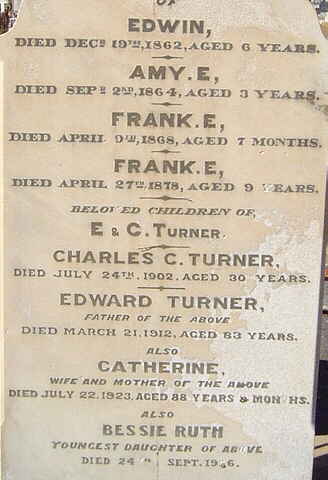 OF
EDWIN,
DIED DECR 19TH, 1862, AGED 6 YEARS.
AMY. E,
DIED SEPR 2ND, 1864, AGED 3 YEARS.
FRANK. E,
DIED APRIL 9TH, 1868, AGED 7 MONTHS.
FRANK. E,
DIED APRIL 27TH, 1878, AGED 9 YEARS.
BELOVED CHILDREN OF,
E & C. TURNER.
CHARLES C. TURNER,
DIED JULY 24TH, 1902, AGED 30 YEARS.
EDWARD TURNER,
FATHER OF THE ABOVE
DIED MARCH 21, 1912, AGED 83 YEARS.
ALSO
CATHERINE,
WIFE AND MOTHER OF THE ABOVE
DIED JULY 22, 1923, AGED 88 YEARS & MONTHS.
ALSO
BESSIE RUTH
YOUNGEST DAUGHTER OF ABOVE
DIED 24TH SEPT.